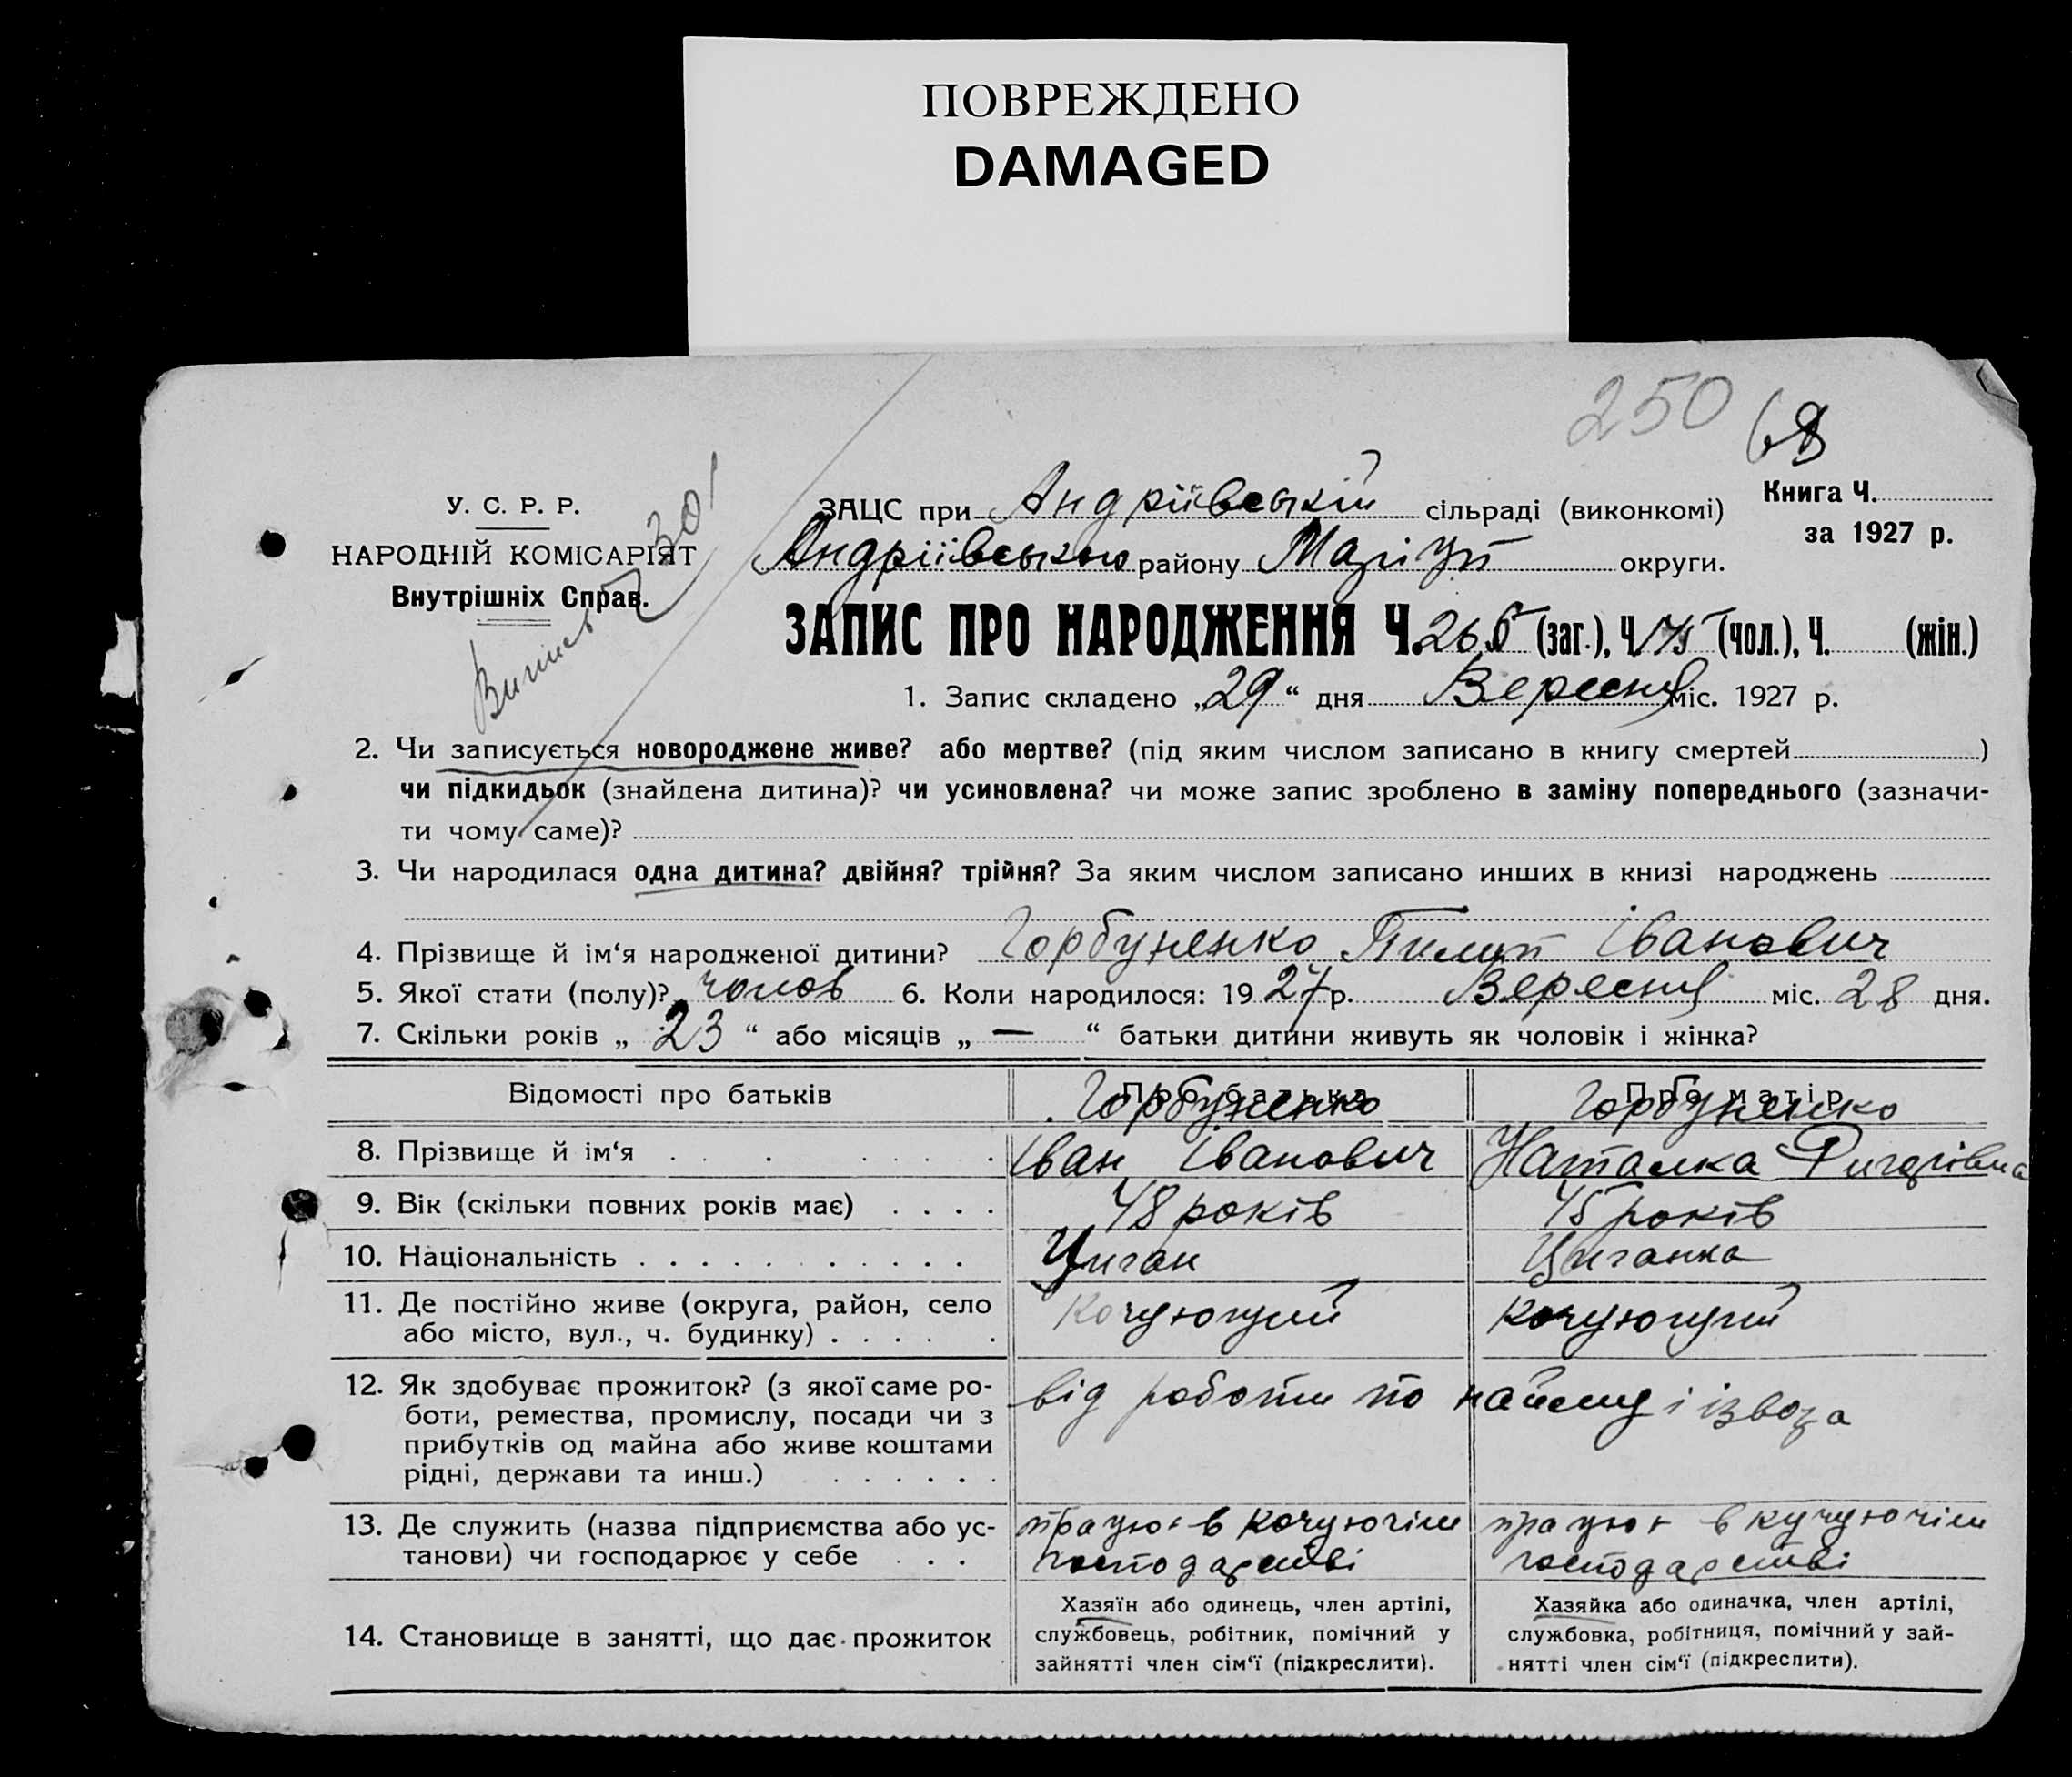 ПОВРЕЖДЕНО
DAMAGED
250 68
У. С. Р. Р.
НАРОДНІЙ КОМІСАРІЯТ
Внутрішніх Справ.
ЗАЦС при Андріївській сільраді (виконкомі)
Книга Ч.
за 1927 р.
Андріївського району Маріуп округи.
ЗАПИС ПРО НАРОДЖЕННЯ Ч. 265 (заг.), Ч. 145 (чол.), Ч. (жін.)
1. Запис складено „29“ дня Вересня міс. 1927 р.
2. Чи записується новороджене живе? або мертве? (під яким числом записано в книгу смертей)
чи підкидьок (знайдена дитина)? чи усиновлена? чи може запис зроблено в заміну попереднього (зазначи-
ти чому саме)?
3. Чи народилася одна дитина? двійня? трійня? За яким числом записано инших в книзі народжень
4. Прізвище й ім‘я народженої дитини? Горбуненко Пилип Іванович
5. Якої стати (полу)? чолов 6. Коли народилося: 1927 р. Вересня міс. 28 дня.
7. Скільки років „ 23 “ або місяців „ — “ батьки дитини живуть як чоловік і жінка?
Відомості про батьків Про батька Про матір
Горбуненко Горбуненко
8. Прізвище й ім‘я Іван Іванович Наталка
9. Вік (скільки повних років має) 48 років 45 років
10. Національність Циган Циганка
11. Де постійно живе (округа, район, село
або місто, вул., ч. будинку) Кочуючий Кочуючий
12. Як здобуває прожиток? (з якої саме ро-
боти, ремества, промислу, посади чи з
прибутків од майна або живе коштами
рідні, держави та инш.)
від роботи по найму і ізвоза
13. Де служить (назва підприємства або ус-
танови) чи господарює у себе
працює в кочуючім
господарстві
працює в кучуючім
господарстві
14. Становище в занятті, що дає прожиток
Хазяїн або одинець, член артілі,
службовець, робітник, помічний у
зайнятті член сім‘ї (підкреслити).
Хазяйка або одиначка, член артілі,
службовка, робітниця, помічний у зай-
нятті член сім‘ї (підкреслити).